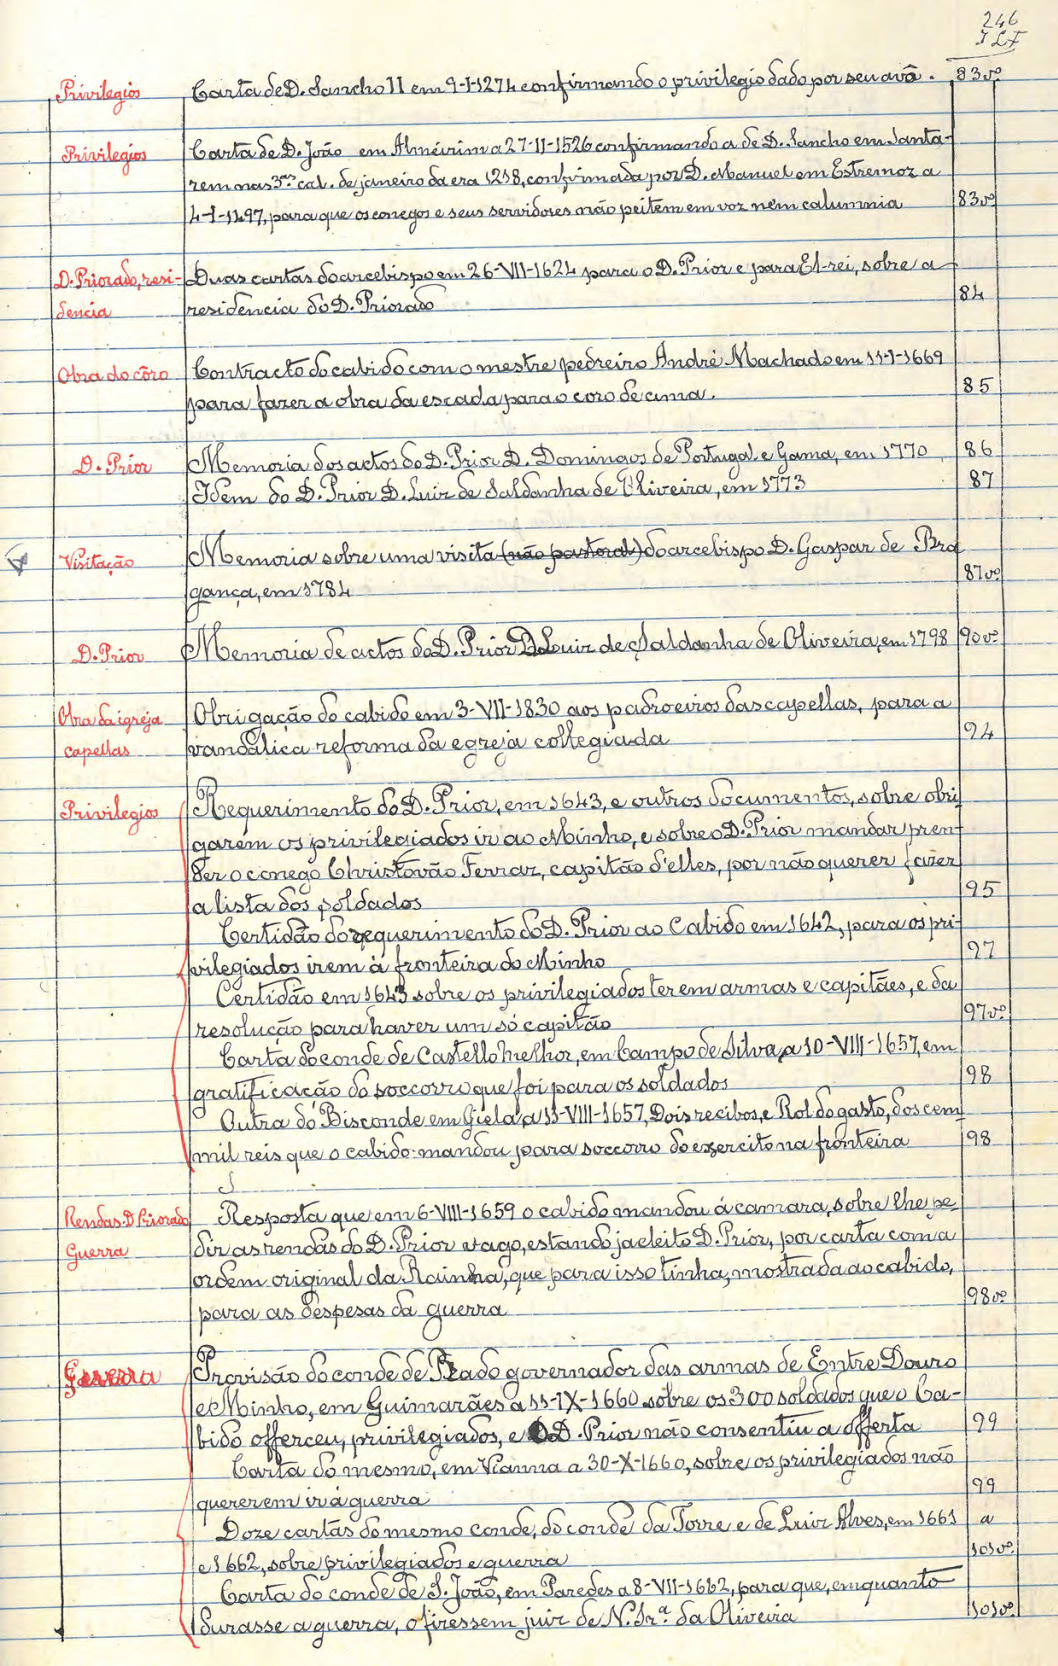 246
Privilegios Carta de D. Sancho II em 9-I-1274 confirmando o privilegio dado por seu avô. 83vº
Privilegios Carta de D. João em Almeirim a 27-II-1526 confirmando a de D. Sancho em Santa-
rem nas 3as cal. de janeiro da era 1258, confirmada por D. Manuel em Estremoz a
4-I-1497, para que os conegos e seus servidores não peitem em voz nem calumnia 83vº
D. Priorado, resi- Duas cartas do arcebispo em 26-VII-1624 para o D. Prior e para El-rei, sobre a
dencia residencia do D. Priorado 84
Obra do côro Contracto do cabido com o mestre pedreiro André Machado em 11-I-1669
para fazer a obra da escada para o coro de cima. 85
D. Prior Memoria dos actos do D. Prior D. Domingos de Portugal e Gama, em 1770 86
Idem do D. Prior D. Luiz de Saldanha de Oliveira, em 1773 87
Visitação Memoria sobre uma visita (não pastoral) do arcebispo D. Gaspar de Bra
gança, em 1784 87vº
D. Prior Memoria de actos do D. Prior D. Luiz de Saldanha de Oliveira, em 1798 90vº
Obra da igreja Obrigação do cabido em 3-VII-1830 aos padroeiros das capellas, para a
capellas vandalica reforma da egreja collegiada 94
Privilegios Requerimento do D. Prior, em 1643, e outros documentos, sobre obri
garem os privilegiados ir ao Minho, e sobre o D. Prior mandar pren-
der o conego Christovão Ferraz, capitão d'elles, por não querer fazer
a lista dos soldados 95
Certidão do requerimento do D. Prior ao Cabido em 1642, para os pri-
vilegiados irem á fronteira do Minho 97
Certidão em 1643 sobre os privilegiados terem armas e capitães, e da
resolução para haver um só capitão 97vº
Carta do conde de Castello Melhor, em Campo de Silva, a 10-VIII-1657, em
gratificação do soccorro que foi para os soldados 98
Outra do Bisconde em Giela, a 11-VIII-1657, Dois recibos, e Rol do gasto, dos cem
mil reis que o cabido mandou para soccorro do exercito na fronteira 98
Rendas. D. Priorado Resposta que em 6-VIII-1659 o cabido mandou á camara, sobre lhe pe-
Guerra dir as rendas do D. Prior vago, estando ja eleito D. Prior, por carta com a
ordem original da Rainha, que para isso tinha, mostrada ao cabido,
para as despesas da guerra 98vº
Guerra Provisão do conde de Prado governador das armas de Entre Douro
e Minho, em Guimarães a 11-IX-1660 sobre os 300 soldados que o Ca-
bido offerceu, privilegiados, e o D. Prior não consentiu a offerta 99
Carta do mesmo, em Vianna a 30-X-1660, sobre os privilegiados não
quererem ir á guerra 99
Doze cartas do mesmo conde, do conde da Torre e de Luiz Alves, em 1661 a
e 1662, sobre privilegiados e guerra 101vº
Carta do conde de S. João, em Paredes a 8-VII-1662, para que, emquanto
durasse a guerra, o fizessem juiz de N. Srª. da Oliveira 101vº